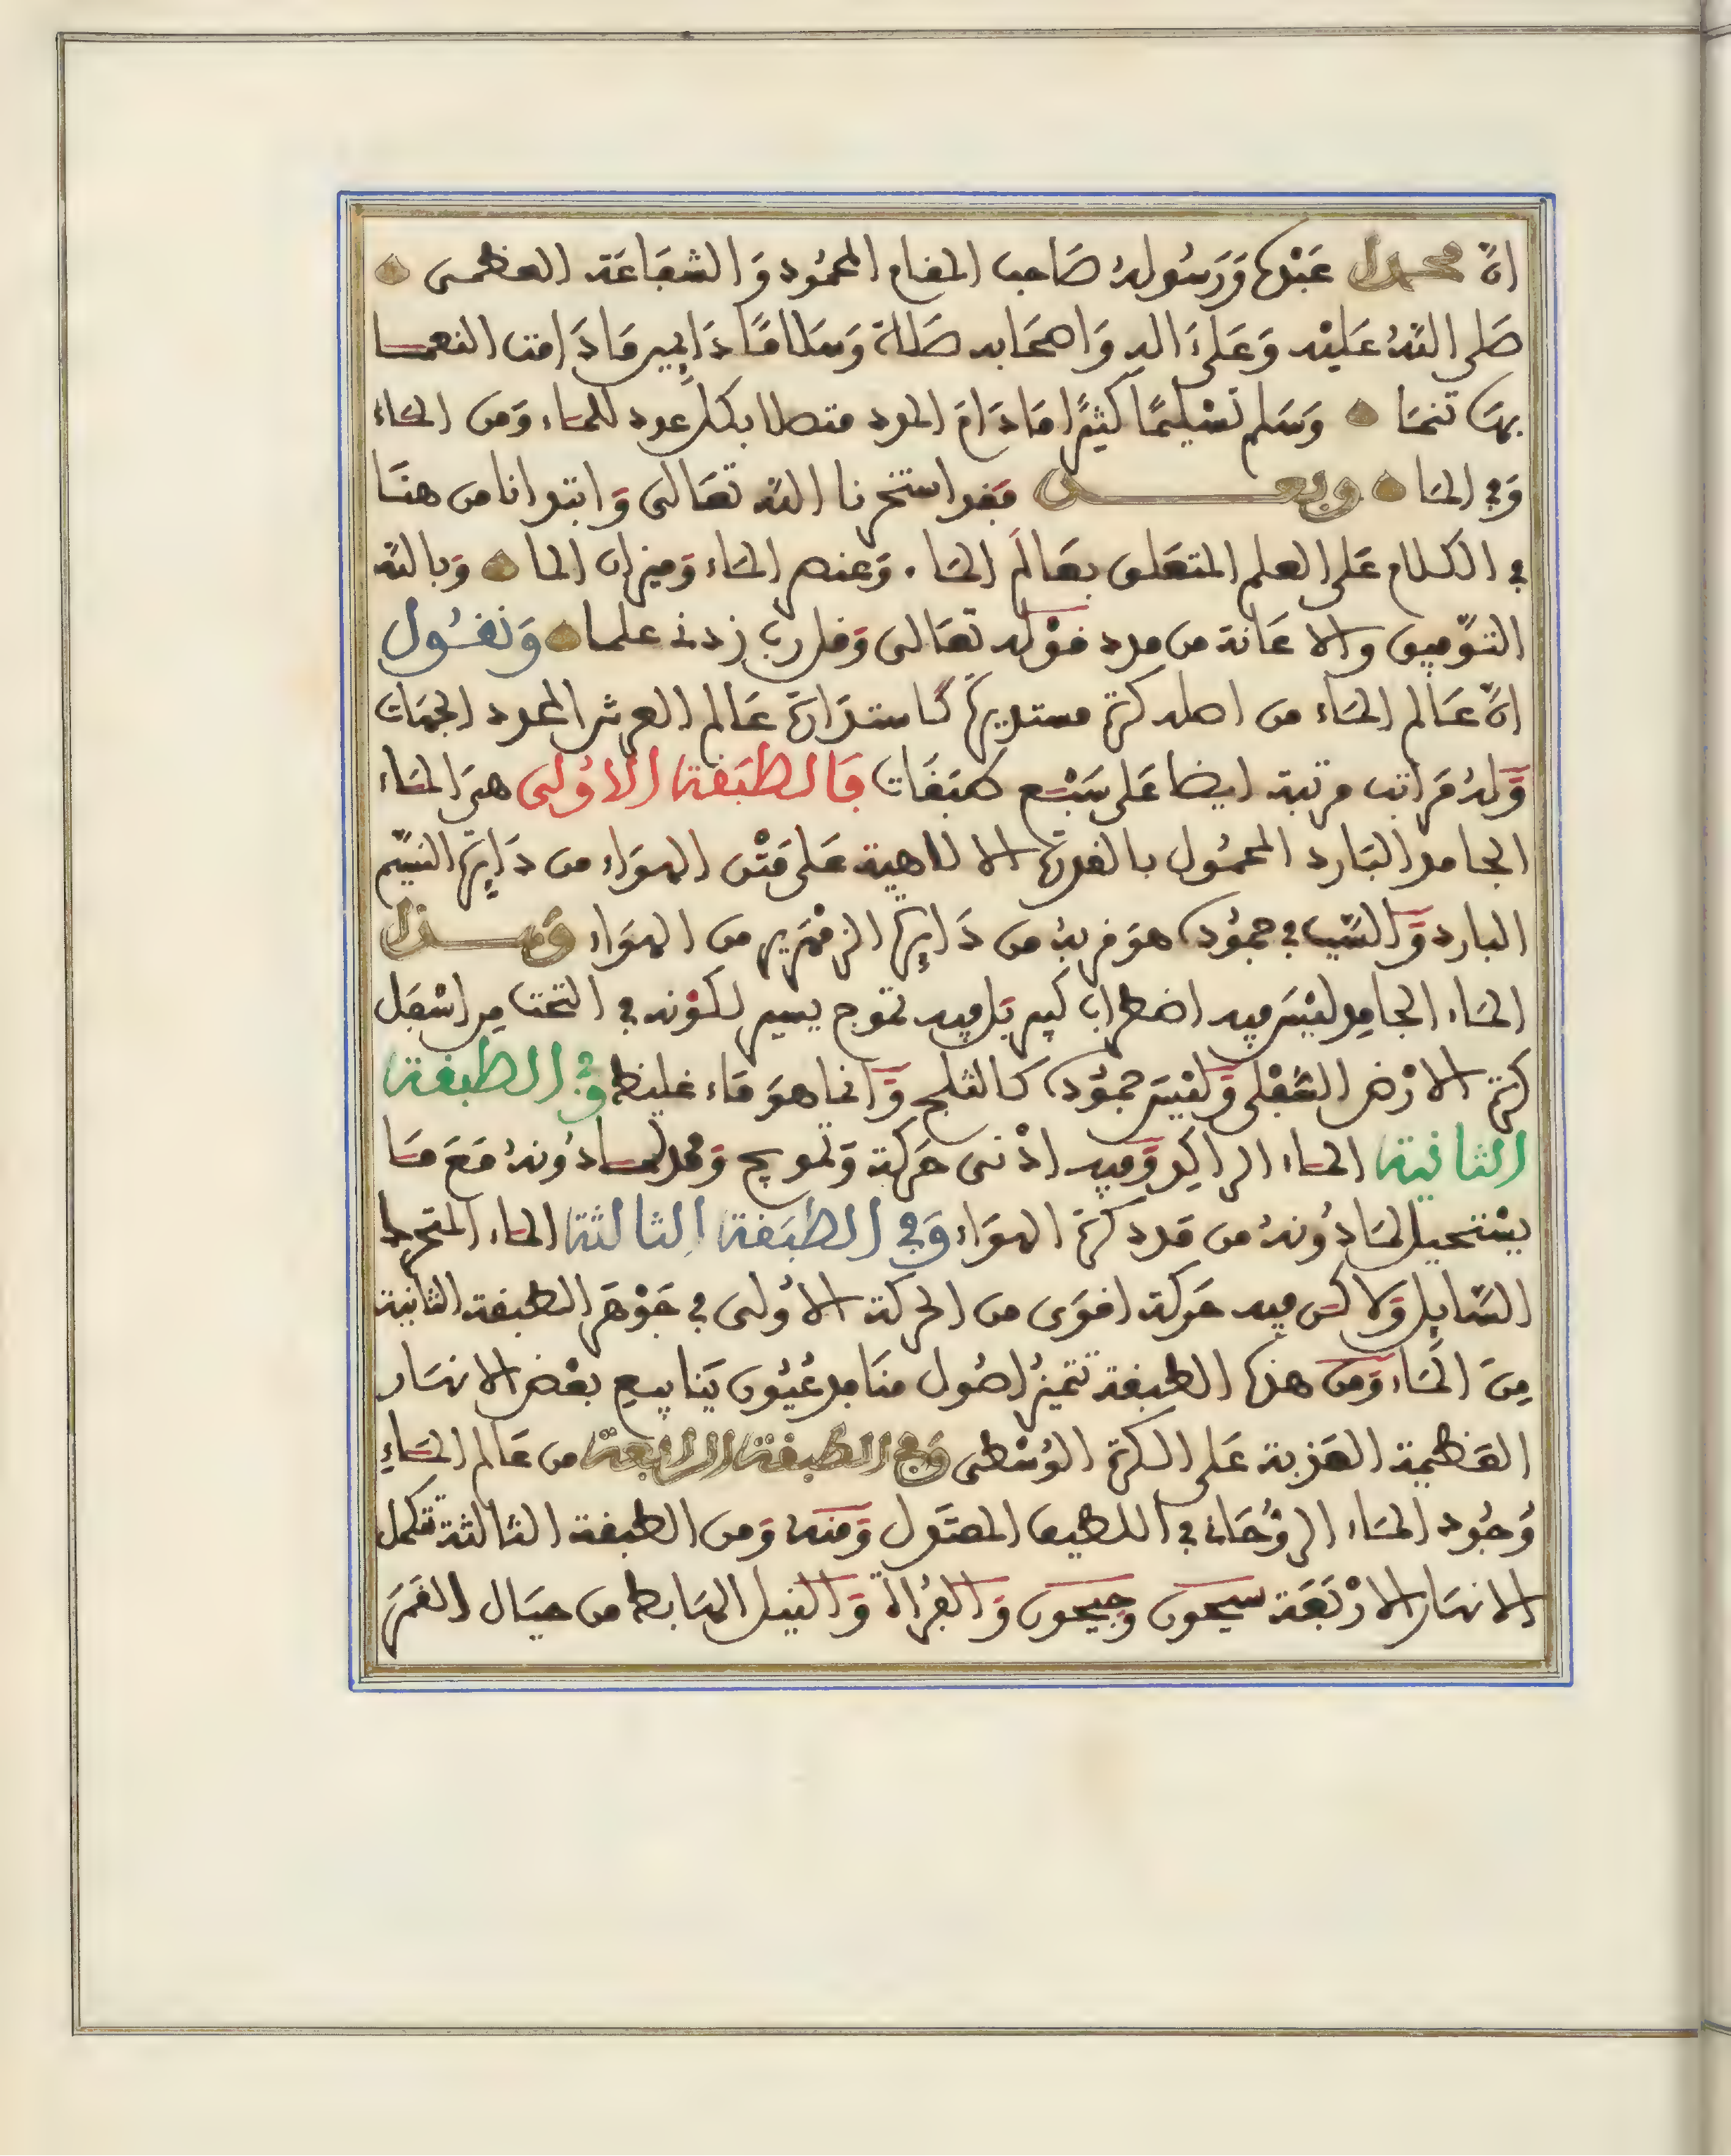 انّ محمدا عَبْدُه وَرَسُولهُ صَاحب المقام المحمُود وَالشفَاعَة العظمى
صَلى اللهُ عَليْه وَعَلى ءَاله وَاصحَابه صَلاة وَسَلامًا دَايمين مَا دَامت النعمـا
بهَا تنمَا وَسَلم تسْليمًا كثيرًا مَا دَامَ المدد متصلا بكل عود للمَاء وَمن المَاء
وَفى المَا وبعـــد فقد استخرنا اللهَ تعَالى وَابتدانا من هنَا
فى الكلام عَلى العلم المتعَلق بعَالَم المَا. وَعنصر المَاء وَميزان الما وَبالله
التوّفيق والاعَانة من مدد قوْله تعَالى وَقل ربّ زدنى علما وَنقُول
انّ عَالم المَاء من اصله كرة مستديرة كاستدَارَة عَالم العرش المحدد الجهَات
وَّلهُ مَرَاتب مرتبة ايضا عَلى سَبْع طبَقَات فَالطبَقة الاوُلى هىَ المَاء
الجامد البَارد المحمُول بالقدرة الالاهية عَلى مَتْن الهوَاء من دَايرَة النسيّم
البارد وَّالسَّبب فى جمُوده هوَ قربهُ من دَايرَة الزمْهَرير من الهوَاء وَهــذا
المَاء الجامِد ليْسَ فيه اضطراب كبير بَل فيه تموج يسير لكوْنه فى التخت من اسْفَل
كرة الارْض السُّفلى وَّليْسَ جمُوده كالثلج وَّانما هوَ مَاء غليظ وَفى الطبقة
الثانية المَاء الراكِد وَّفيه ادْنى حَركة وَتمويج وَممد لمـا دُونهُ مَعَ مَا
يسْتحيل لمَا دُونهُ من مَدد كرة الهوَاء وَفى الطبَقة الثالثة المَاء المتحرك
السَّايل وَلاكن فيه حَركة اقوَى من الحركة الاوُلى فى جَوْهَر الطبقة الثانية
مِنَ المَاء وَمن هذه الطبقة تتميزُ اصُول منَابع عُيُون يَنابيع بعْض الانهَار
العَظيمة العَذبة عَلى الكرة الوُسْطى وَفى الطبقة الرابعة من عَالم المَاءِ
وُجُود المَاء الروُّحَانى اللطيف المعتَدل وَمنهُ وَمن الطبقة الثالثة تتكمل
الانهَار الارْبَعَة سيحون وَجيحون وَالفُراة وَّالنيل الهَابط من جبَال القَمَر